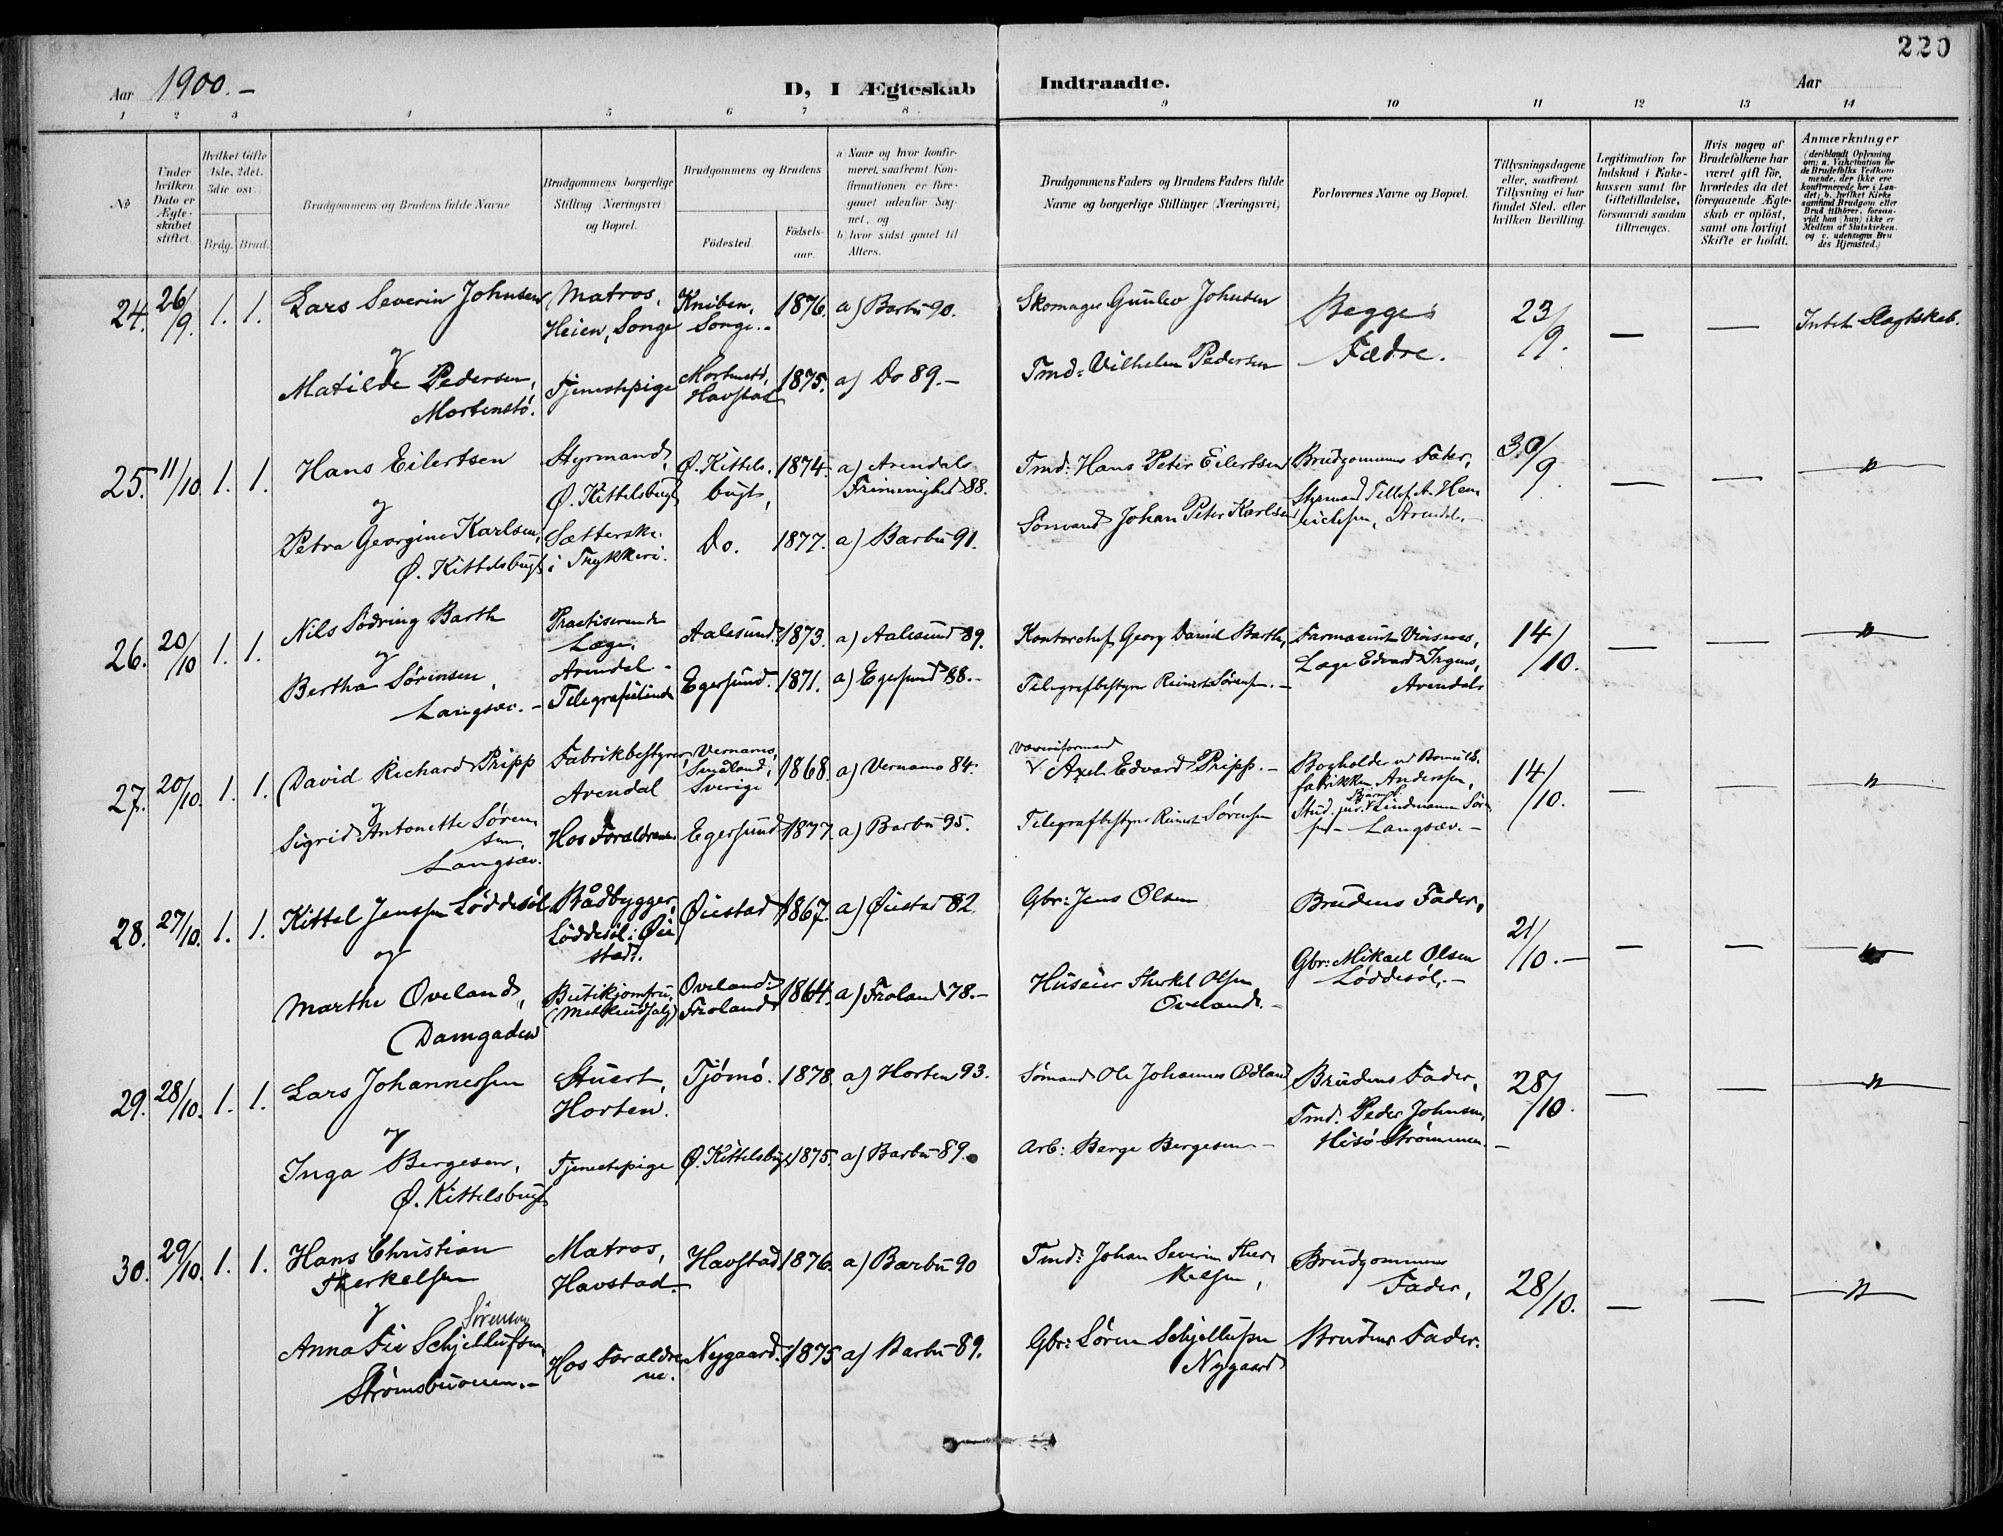 220
Aar 1900.-
D, I Ægteskab Indtraadte.
Aar
1 2 3 4 5 6 7 8 9 10 11 12 13 14
No
Under hvilken Dato er Ægteskabet stiftet.
Hvilket Gifte 1ste, 2det, 3die osv.
Brdg. Brud.
Brudgommens og Brudens fulde Navne
Brudgommens borgerlige Stilling (Næringsvei) og Bopæl.
Brudgommens og Brudens
Fødested.
Fødselsaar.
a Naar og hvor konfirmeret, saafremt Konfirmationen er foregaaet udenfor Sognet, og
b) hvor sidst gaaet til Alters.
Brudgommens Faders og Brudens Faders fulde Navne og borgerlige Stillinger (Næringsvei)
Forlovernes Navne og Bopæl.
Tillysningsdagene eller, saafremt Tillysning ei har fundet Sted, efter hvilken Bevilling.
Legitimation for Indskud i Enkekassen samt for Giftetilladelse, forsaavidt saadan tiltrænges.
Hvis nogen af Brudefolkene har været gift før, hvorledes da det foregaaende Ægteskab er opløst, samt om lovligt Skifte er holdt.
Anmærkninger
(deriblandt Oplysning om: a. Vakcination for de Brudefolks Vedkommende, der ikke ere konfirmerede her i Landet; b. hvilket Kirkesamfund Brudgom eller Brud tilhører, forsaavidt han (hun) ikke er Medlem af Statskirken, og c. udensogns Brudes Hjemsted.)
24. 26/9. 1. 1. Lars Severin Johnsen Matros, Heien, Songe Kniben, Songe.. 1876. a) Barbu 90. Skomager Gunlev Johnsen Begges Fædre. 23/9. — — Intet Slagtskab.
og
Matilde Pedersen, Mortenstø. Tjenestepige Mortenstø, Havstad 1875. a) Do 89.- Tmd: Vilhelm Pedersen
25. 11/10. 1. 1. Hans Eilertsen Styrmand, Ø. Kittelsbugt Ø. Kittelsbugt, 1874. a) Arendals Frimenighed 88. Tmd: Hans Peter Eilertsen Brudgommens Fader, 30/9. — — "
og
Petra Georgine Karlsen, Ø. Kittelsbugt Sætterske i Trykkeri. Do. 1877. a) Barbu 91. Sömand Johan Peter Karlsen Styrmand Tellef A. Henrichsen, Arendal.-
26. 20/10 1. 1. Nils Södring Barth Practiserende Læge, Arendal - Aalesund. 1873. a) Aalesund 89. Kontorchef Georg Daniel Barth, Farmaceut Vinsnes, 14/10. — — "
og
Bertha Sørensen, Langsæv.- Telegrafistinde Egersund. 1871. a) Egersund 88.- Telegrafbestyrer Reinert Sørensen.- Læge Edvard Irgens, Arendal
27. 20/10. 1. 1. David Richard Pripp Fabrikbestyrer, Arendal Vernamo, Småland, Sverige 1868. a) Vernamo 84. Axel Edvard Pripp.- Bogholder ved Bomulds fabrikken Andersen, 14/10. — — "
og
Sigrid Antonette Sørensen, Langsæv. Hos Forældrene Egersund 1877. a) Barbu 95. Telegrafbestyrer Reinert Sørensen Stud. jur. Lindmann Sørensen - Langsæv.-
28. 27/10. 1. 1. Kittel Jenssen Løddesøl Bådbygger, Løddesøl i Øiestad. Øiestad 1867. a) Øiestad 82. Gbr: Jens Olsen Brudens Fader, 21/10.- — — "
og
Marthe Oveland, Damgaden Butikjomfru. (Melkeudsalg) Oveland: Froland 1864. a) Froland 78.- Huseier Therkel Olsen Oveland.- Gbr: Mikael Olsen Løddesøl.-
29. 28/10. 1. 1. Lars Johannessen Stuert, Horten. Tjømö. 1878. a) Horten 93. Sömand Ole Johannes Ödland Brudens Fader, 28/10. — — "
og
Inga Bergesen, Ø. Kittelsbugt Tjenestepige Ø. Kittelsbugt 1875. a) Barbu 89. Arb: Berge Bergesen - Tmd. Peder Johnsen, Hisö Strömmen.-
30. 29/10. 1. 1. Hans Christian Therkelsen Matros, Havstad. Havstad 1876. a) Barbu 90 Tmd: Johan Severin Therkelsen, Brudgommens Fader, 28/10. — — "
og Sørensen
Anna Fie Schjellufsen, Strømsbuonen.- Hos Forældrene. Nygaard. 1875 a) Barbu 89. Gbr: Søren Schjellufsen Nygaard Brudens Fader.